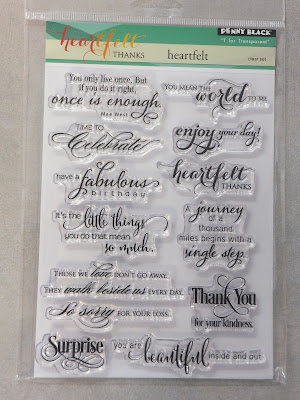 PENNY BLACK
"T for Transparent"
heartfelt
THANKS
heartfelt
You only live once. But
if you do it right,
once is enough.
Mae West
YOU MEAN THE
world TO ME
TIME TO
Celebrate
enjoy your day!
have a
fabulous
birthday
heartfelt
THANKS
It's the little things
you do that mean
so much.
A journey
of a
thousand
miles begins with a
single step.
THOSE WE love DON'T GO AWAY,
THEY walk beside us EVERY DAY.
So sorry FOR YOUR LOSS.
Thank You
for your kindness.
Surprise
you are beautiful inside and out